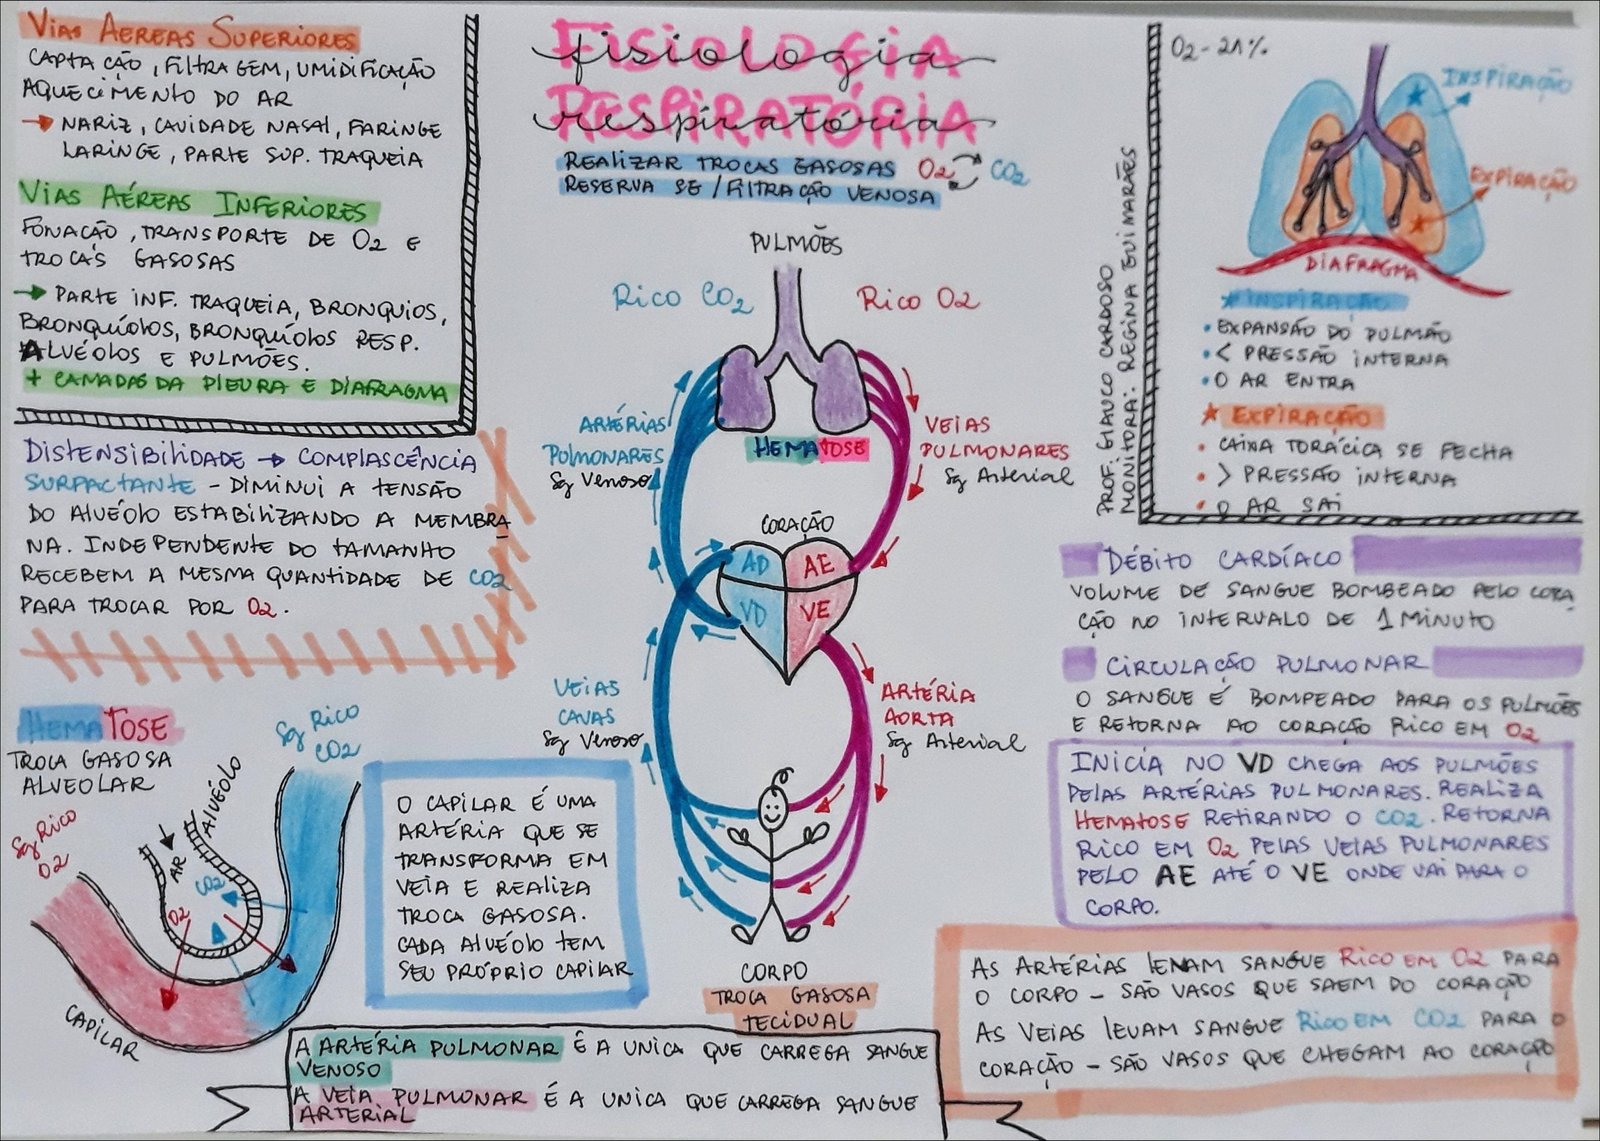 Vias Aereas Superiores
Captação, filtragem, umidificação
aquecimento do ar
→ nariz, cavidade nasal, faringe
laringe, parte sup. traqueia
Vias Aéreas Inferiores
fonação, transporte de O2 e
trocas gasosas
→ parte inf. traqueia, bronquios,
bronquíolos, bronquíolos resp.
Alvéolos e pulmões.
+ camadas da pleura e diafragma
Distensibilidade → complascência
Surfactante - diminui a tensão
do alvéolo estabilizando a membra
na. Independente do tamanho
recebem a mesma quantidade de CO2
para trocar por O2.
Hematose
troca gasosa
alveolar
Sg Rico
CO2
Sg Rico
O2
Alvéolo
Ar
CO2
O2
Capilar
O capilar é uma
artéria que se
transforma em
veia e realiza
troca gasosa.
Cada alvéolo tem
seu próprio capilar
Fisiologia
fisiologia
Respiratória
respiratória
Realizar trocas gasosas O2 CO2
Reserva se/filtração venosa
Pulmões
Rico CO2
Rico O2
Artérias
Pulmonares
Sg Venoso
Hematose
Veias
Pulmonares
Sg Arterial
Coração
AD
AE
VD
VE
Veias
Cavas
Sg Venoso
Artéria
Aorta
Sg Arterial
Corpo
troca gasosa
tecidual
A artéria pulmonar é a unica que carrega sangue
venoso
A veia pulmonar é a unica que carrega sangue
arterial
Prof. Glauco Cardoso
Monitora: Regina Guimarães
O2 - 21%
Inspiração
Expiração
Diafragma
Inspiração
• Expansão do pulmão
• < pressão interna
• O ar entra
Expiração
• Caixa torácica se fecha
• > pressão interna
• O ar sai
Débito Cardíaco
Volume de sangue bombeado pelo cora
ção no intervalo de 1 minuto
Circulação Pulmonar
O sangue é bompeado para os pulmões
e retorna ao coração rico em O2
Inicia no VD chega aos pulmões
pelas artérias pulmonares. Realiza
hematose retirando o CO2. Retorna
rico em O2 pelas veias pulmonares
pelo AE até o VE onde vai para o
corpo.
As artérias levam sangue rico em O2 para
o corpo - são vasos que saem do coração
As veias levam sangue rico em CO2 para o
coração - são vasos que chegam ao coração